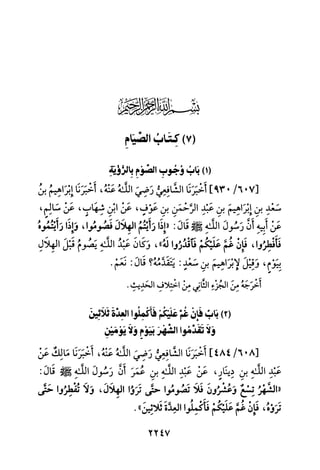 بسم الله الرحمن الرحيم
(٧) كِتَابُ الصِّيَامِ
(١) بَابُ وُجُوبِ الصَّوْمِ بِالرُّؤْيَةِ
[٩٣٠/٦٠٧] أَخْبَرَنَا الشَّافِعِيُّ رَضِيَ اللَّهُ عَنْهُ، أَخْبَرَنَا إِبْرَاهِيمُ بنُ
سَعْدِ بنِ إِبْرَاهِيمَ بنِ عَبْدِ الرَّحْمَنِ بنِ عَوْفٍ، عَنْ ابْنِ شِهَابٍ، عَنْ سَالِمٍ،
عَنْ أَبِيهِ أَنَّ رَسُولَ اللَّهِ ﷺ قَالَ: «إِذَا رَأَيْتُمُ الهِلَالَ فَصُومُوا، وَإِذَا رَأَيْتُمُوهُ
فَأَفْطِرُوا، فَإِنْ غُمَّ عَلَيْكُمْ فَاقْدُرُوا لَهُ»، وَكَانَ عَبْدُ اللَّهِ يَصُومُ قَبْلَ الهِلَالِ
بِيَوْمٍ، وَقِيلَ لِإِبْرَاهِيمَ بنِ سَعْدٍ: يَتَقَدَّمُهُ؟ قَالَ: نَعَمْ.
أَخْرَجَهُ مِنَ الجُزْءِ الثَّانِي مِنْ اخْتِلَافِ الحَدِيثِ.
(٢) بَابُ فَإِنْ غُمَّ عَلَيْكُمْ فَأَكْمِلُوا العِدَّةَ ثَلَاثِينَ
وَلَا تَقَدَّمُوا الشَّهْرَ بِيَوْمٍ وَلَا يَوْمَيْنِ
[٤٨٤/٦٠٨] أَخْبَرَنَا الشَّافِعِيُّ رَضِيَ اللَّهُ عَنْهُ، أَخْبَرَنَا مَالِكٌ عَنْ
عَبْدِ اللَّهِ بنِ دِينَارٍ، عَنْ عَبْدِ اللَّهِ بنِ عُمَرَ أَنَّ رَسُولَ اللَّهِ ﷺ قَالَ:
«الشَّهْرُ تِسْعٌ وَعِشْرُونَ فَلَا تَصُومُوا حتَّى تَرَوُا الهِلَالَ، وَلَا تُفْطِرُوا حَتَّى
تَرَوْهُ، فَإِنْ غُمَّ عَلَيْكُمْ فَأَكْمِلُوا العِدَّةَ ثَلَاثِينَ».
٢٢٤٧